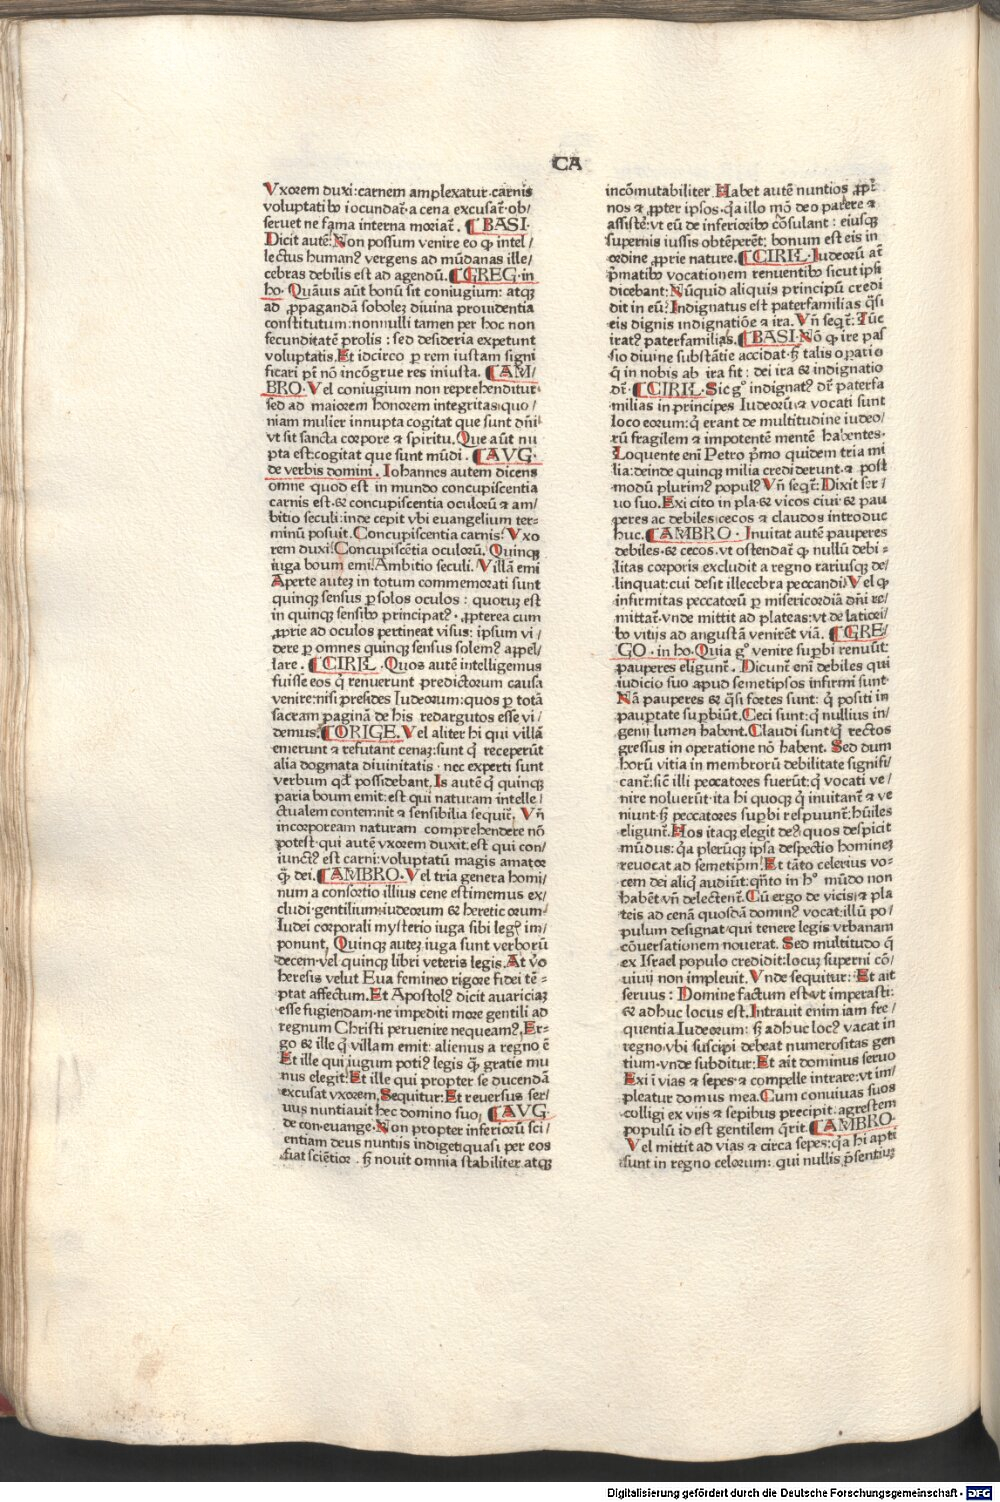 CA
Vxorem duxi:carnem amplexatur.carnis
voluptatibꝰ iocundat᷑.a cena excusat᷑.ob/
seruet ne fama interna moriat᷑. ¶BASI.
Dicit autē.Non possum venire eo ꝙ intel/
lectus humanꝰ vergens ad mūdanas ille/
cebras debilis est ad agendū.¶GREG.in
ho. Quāuis aūt bonū sit coniugium: atqꝫ
ad ꝓpagandā soboleꝫ diuina prouidentia
constitutum:nonnulli tamen per hoc non
fecunditatē prolis : sed desideria expetunt
voluptatis.Et idcirco ꝑ rem iustam signi
ficari pt̄ nō incōgrue res iniusta. ¶AM/
BRO.Vel coniugium non reprehenditur
sed ad maiorem honorem integritas:quo/
niam mulier innupta cogitat que sunt dn̄i
vt sit sancta corpore & spiritu.Que aūt nu
pta est:cogitat que sunt mūdi. ¶AVG.
de verbis domini. Iohannes autem dicens
omne quod est in mundo concupiscentia
carnis est.& concupiscentia oculorū & am/
bitio seculi:inde cepit vbi euangelium ter=
minū posuit.Concupiscentia carnis.Vxo
rem duxi.Concupiscētia oculorū.Quinqꝫ
iuga boum emi.Ambitio seculi.Villā emi
Aperte auteꝫ in totum commemorati sunt
quinqꝫ sensus ꝑ solos oculos : quoruꝫ est
in quinqꝫ sensibꝰ principatꝰ. ꝓpterea cum
ꝓprie ad oculos pertineat visus: ipsum vi/
dere ꝑ omnes quinqꝫ sensus solemꝰ appel/
lare. ¶CIRIL.Quos autē intelligemus
fuisse eos q̇ renuerunt predictorum causa
venire:nisi presides Iudeorum:quos ꝑ totā
sacram paginā de his redargutos esse vi/
demus.¶ORIGE.Vel aliter hi qui villā
emerunt & refutant cenaꝫ:sunt q̇ receperūt
alia dogmata diuinitatis.nec experti sunt
verbum qd̄ possidebant.Is autē q̇ quinqꝫ
paria boum emit:est qui naturam intelle/
ctualem contemnit & sensibilia sequit᷑. Vn̄
incorpoream naturam comprehendere nō
potest.qui autē vxorem duxit.est qui con/
iunctꝰ est carni:voluptatū magis amator
ꝙ̄ dei.¶AMBRO.Vel tria genera homi/
num a consortio illius cene estimemus ex/
cludi.gentilium:iudeorum & hereticorum.
Iudei corporali mysterio iuga sibi legꝭ im/
ponunt. Quinqꝫ auteꝫ iuga sunt verborū
decem.vel quinqꝫ libri veteris legis.At v̊o
heresis velut Eua femineo rigore fidei tē=
ptat affectum.Et Apostolꝰ dicit auariciaꝫ
esse fugiendam.ne impediti more gentili ad
regnum Christi peruenire nequeamꝰ.Er=
go & ille q̇ villam emit: alienus a regno ē
Et ille qui iugum potiꝰ legis ꝙ̄ gratie mu
nus elegit.Et ille qui propter se ducendā
excusat vxorem.Sequitur:Et reuersus ser/
uus nuntiauit hec domino suo. ¶AVG
de con.euange.Non propter inferiorū sci/
entiam deus nuntiis indiget:quasi per eos
fiat sciētior. sꝫ nouit omnia stabiliter atqꝫ
incōmutabiliter.Habet autē nuntios ꝓpt̄
nos & ꝓpter ipsos.q̇a illo mō deo parere &
assistē:vt eū de inferioribꝰ cōsulant : eiusqꝫ
supernis iussis obtēperēt: bonum est eis in
ordine ꝓprie nature.¶CIRIL.Iudeorū at̄
pͥmatibꝰ vocationem renuentibꝰ sicut ipsi
dicebant:Nūquid aliquis principū credi
dit in eū.Indignatus est paterfamilias q̇si
eis dignis indignatiōe & ira.Vn̄ seqt᷑:Tūc
iratꝰ paterfamilias.¶BASI.Nō ꝙ ire pas
sio diuine substātie accidat.sꝫ talis oꝑatio
q̇ in nobis ab ira fit : dei ira & indignatio
dr̄.¶CIRIL.Sic gͦ indignatꝰ dr̄ paterfa
milias in principes Iudeorū:& vocati sunt
loco eorum:q̇ erant de multitudine iudeo/
rū fragilem & impotentē mentē habentes.
Loquente eni Petro pͥmo quidem tria mi
lia:deinde quinqꝫ milia crediderunt.& post
modū plurimꝰ populꝰ Vn̄ seqt᷑: Dixit ser/
uo suo.Exi cito in pla.& vicos ciui.& pau
peres ac debiles:cecos & claudos introduc
huc.¶AMBRO. Inuitat autē pauperes
debiles.& cecos.vt ostendat ꝙ nullū debi=
litas corporis excludit a regno rariusqꝫ de/
linquat:cui desit illecebra peccandi.Vel ꝙ
infirmitas peccatorū ꝑ misericordiā dn̄i re/
mittat᷑.vnde mittit ad plateas:vt de latiori/
bꝰ vitijs ad angustā venirēt viā. ¶GRE/
GO. in ho.Quia gͦ venire suꝑbi renuūt:
pauperes eligunt᷑. Dicunt᷑ eni debiles qui
iudicio suo apud semetipsos infirmi sunt
Nā pauperes & q̇si fortes sunt: q̇ positi in
pauꝑtate suꝑbiūt.Ceci sunt:q̇ nullius in/
genij lumen habent.Claudi sunt:q̇ rectos
gressus in operatione nō habent. Sed dum
horū vitia in membrorū debilitate signifi/
cant᷑:sic illi peccatores fuerūt:q̇ vocati ve/
nire noluerūt.ita hi quoqꝫ q̇ inuitant᷑ & ve
niunt.sꝫ peccatores suꝑbi respuunt᷑:hūiles
eligunt᷑.Hos itaqꝫ elegit deꝰ quos despicit
mūdus: q̇a plerūqꝫ ipsa despectio homineꝫ
reuocat ad semetipm̄.Et tāto celerius vo=
cem dei aliq̇ audiūt:qn̄to in hͦ mūdo non
habēt vn̄ delectent᷑.Cū ergo de vicis & pla
teis ad cenā quosdā dominꝰ vocat:illū po/
pulum designat:qui tenere legis vrbanam
cōuersationem nouerat. Sed multitudo q̄
ex Israel populo credidit:locuꝫ superni cō/
uiuij non impleuit. Vnde sequitur: Et ait
seruus : Domine factum est vt imperasti:
& adhuc locus est.Intrauit enim iam fre/
quentia Iudeorum: sꝫ adhuc locꝰ vacat in
regno.vbi suscipi debeat numerositas gen
tium.vnde subditur: Et ait dominus seruo
Exi ī vias & sepes.& compelle intrare:vt im/
pleatur domus mea.Cum conuiuas suos
colligi ex vijs & sepibus precipit.agrestem
populū id est gentilem q̄rit.¶AMBRO.
Vel mittit ad vias & circa sepes:q̇a hi apti
sunt in regno celorum:qui nullis pͥsentiuꝫ
Digitalisierung gefördert durch die Deutsche Forschungsgemeinschaft - DFG